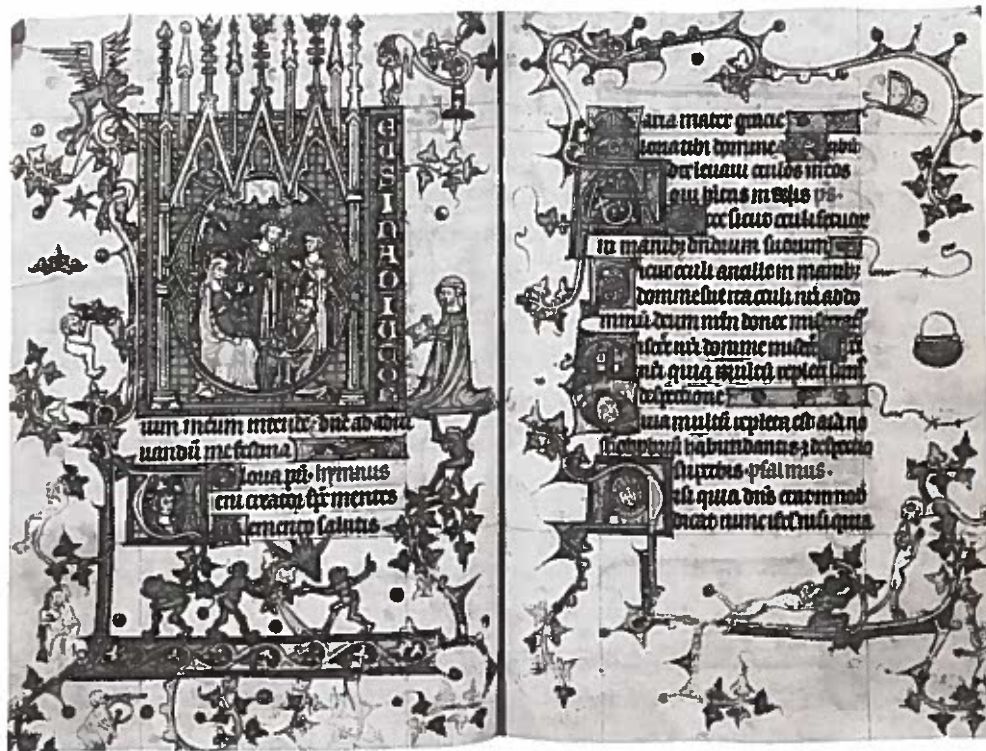 EUS IN ADIUTOR
ium meum intende· dne ad adiu
uandū me festina
loria pr̄i· hymnus
eni creator sp̄s mentes
emento salutis
aria mater gracie
loria tibi domine
leuaui oculos meos
qui habitas in celis ps·
cce sicut oculi seruoꝝ
in manibꝫ dn̄oꝝum suoꝝum
icut oculi ancille in manibꝫ
domine sue ita oculi nr̄i ad do
minū deum nr̄m donec
nr̄i domine
nr̄i quia multū repleti sumꝰ
despectione
uia multū repleta est aīa nr̄a
obprobriū habundantibꝫ ⁊ despectio
superbis· psalmus·
isi quia dn̄s erat in nob
dicat nunc isrl̄ nisi quia